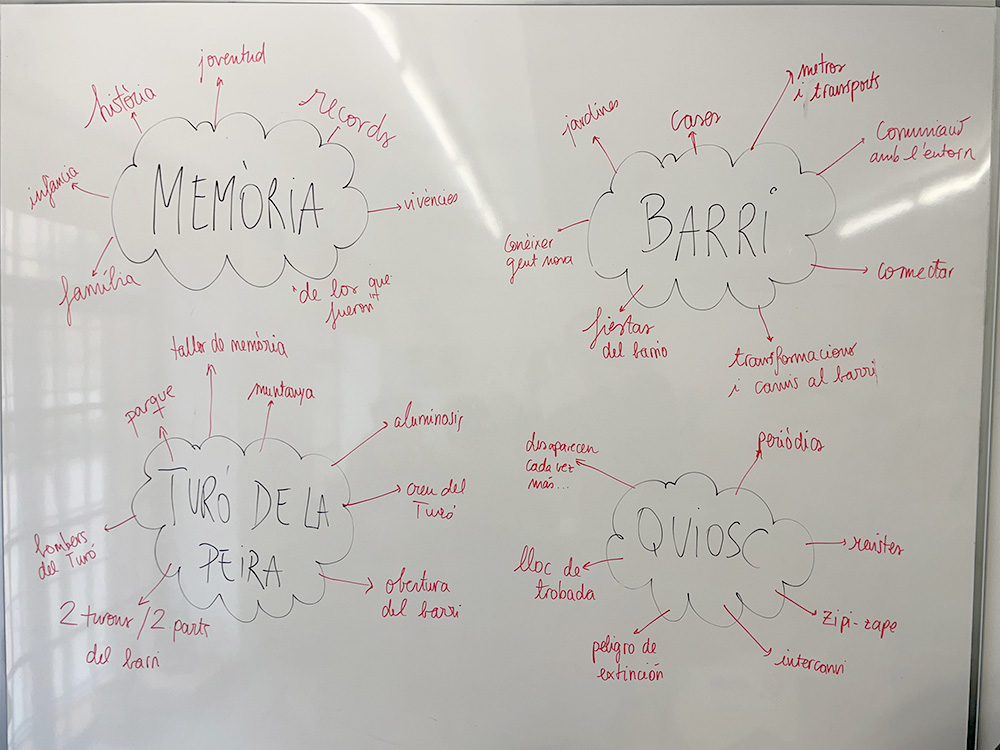 joventud
història
records
infància
MEMÒRIA
vivències
família
"de los que
fueron"
metros
i transports
jardines
cases
comunicació
amb l'entorn
BARRI
conèixer
gent nova
connectar
fiestas
del barrio
transformacions
i canvis al barri
taller de memòria
parque
muntanya
aluminosis
TURÓ DE LA
PEIRA
creu del
Turó
bombers
del Turó
obertura
del barri
2 turons / 2 parts
del barri
desaparecen
cada vez
más...
periódics
QUIOSC
revistes
lloc de
trobada
zipi-zape
peligro de
extinción
intercanvi